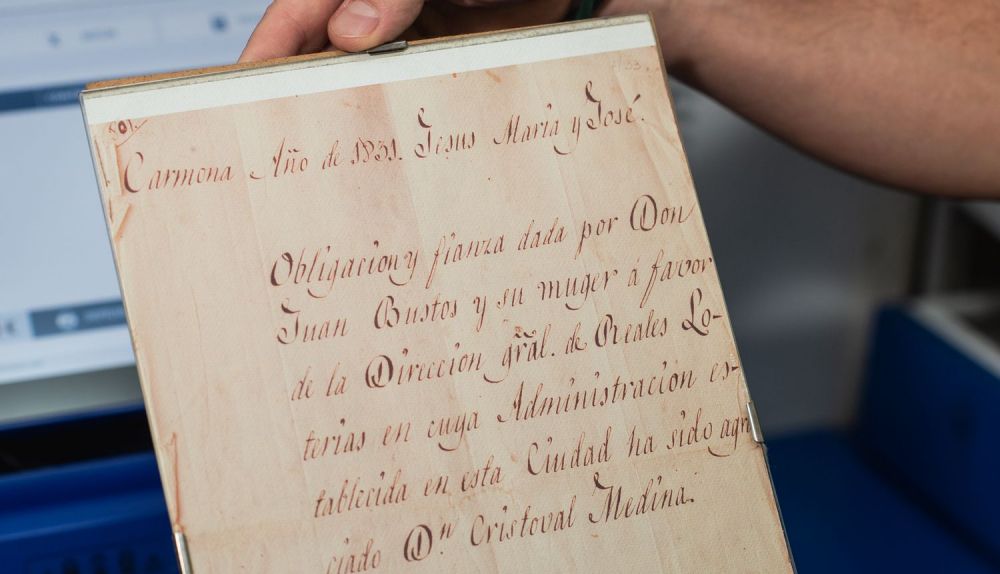 Carmona Año de 1831. Jesus Maria y José.
Obligacion y fianza dada por Don
Juan Bustos y su muger á favor
de la Direccion gral. de Reales Lo-
terias en cuya Administracion es-
tablecida en esta Ciudad ha sido agra
ciado Dn Cristoval Medina.